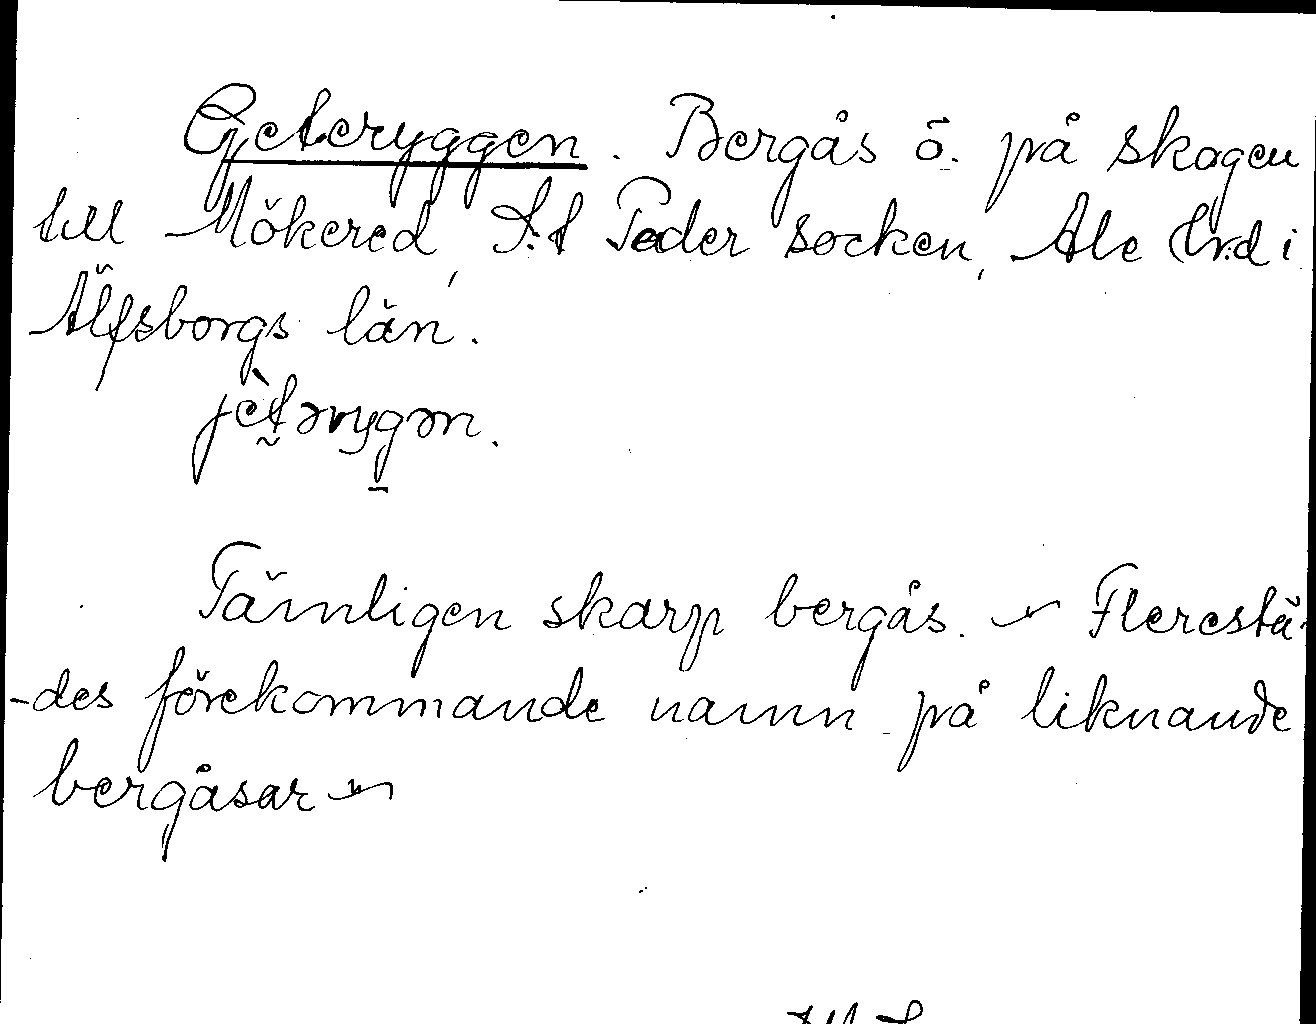 Geteryggen. Bergås ö. på skogen
till Mökered, S:t Peder socken, Ale hrd i
Älfsborgs län.
jètərygən.
Tämligen skarp bergås. — Flerestä-
-des förekommande namn på liknande
bergåsar —